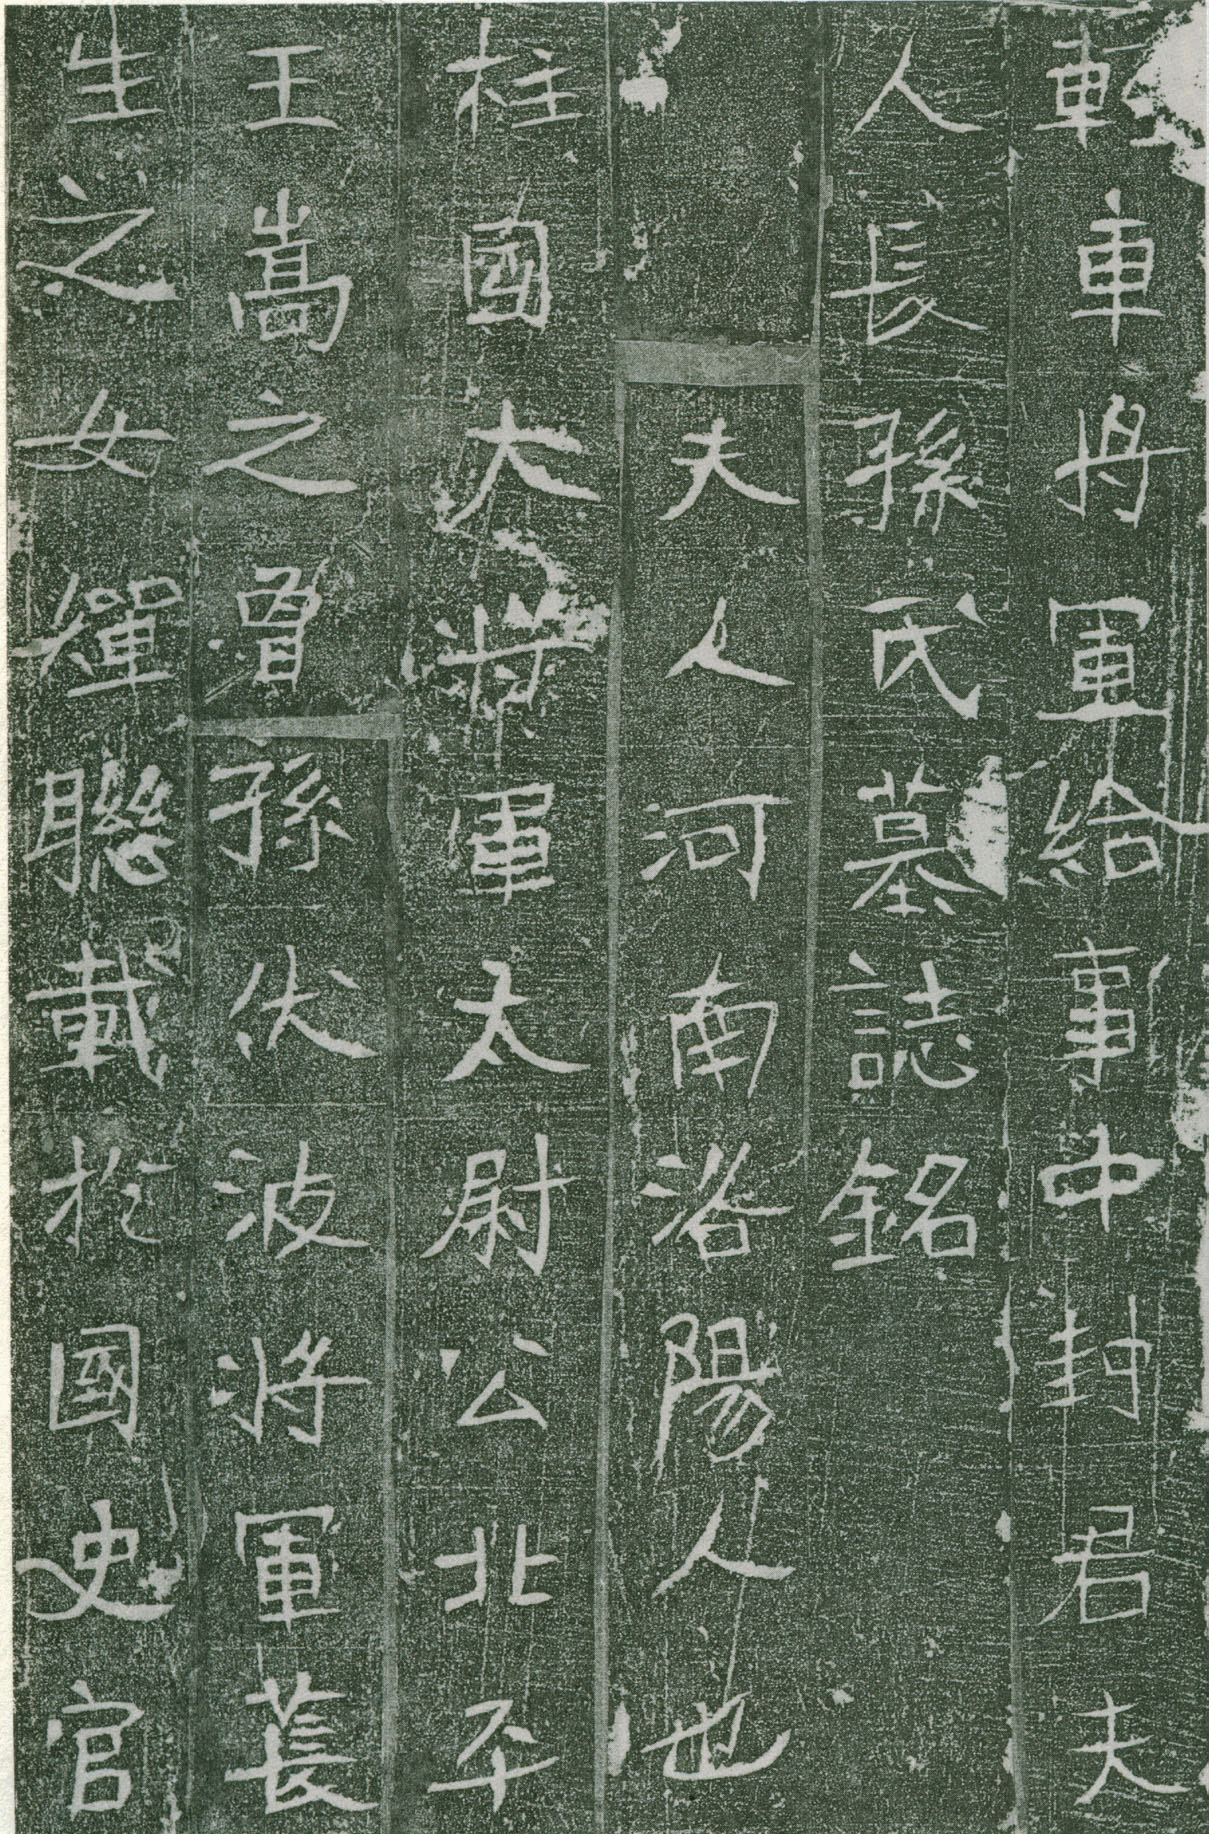 輕車將軍給事中封君夫
人長孫氏墓誌銘
夫人河南洛陽人也
柱國大將軍太尉公北平
王嵩之曾孫伏波將軍萇
生之女聯載於國史官